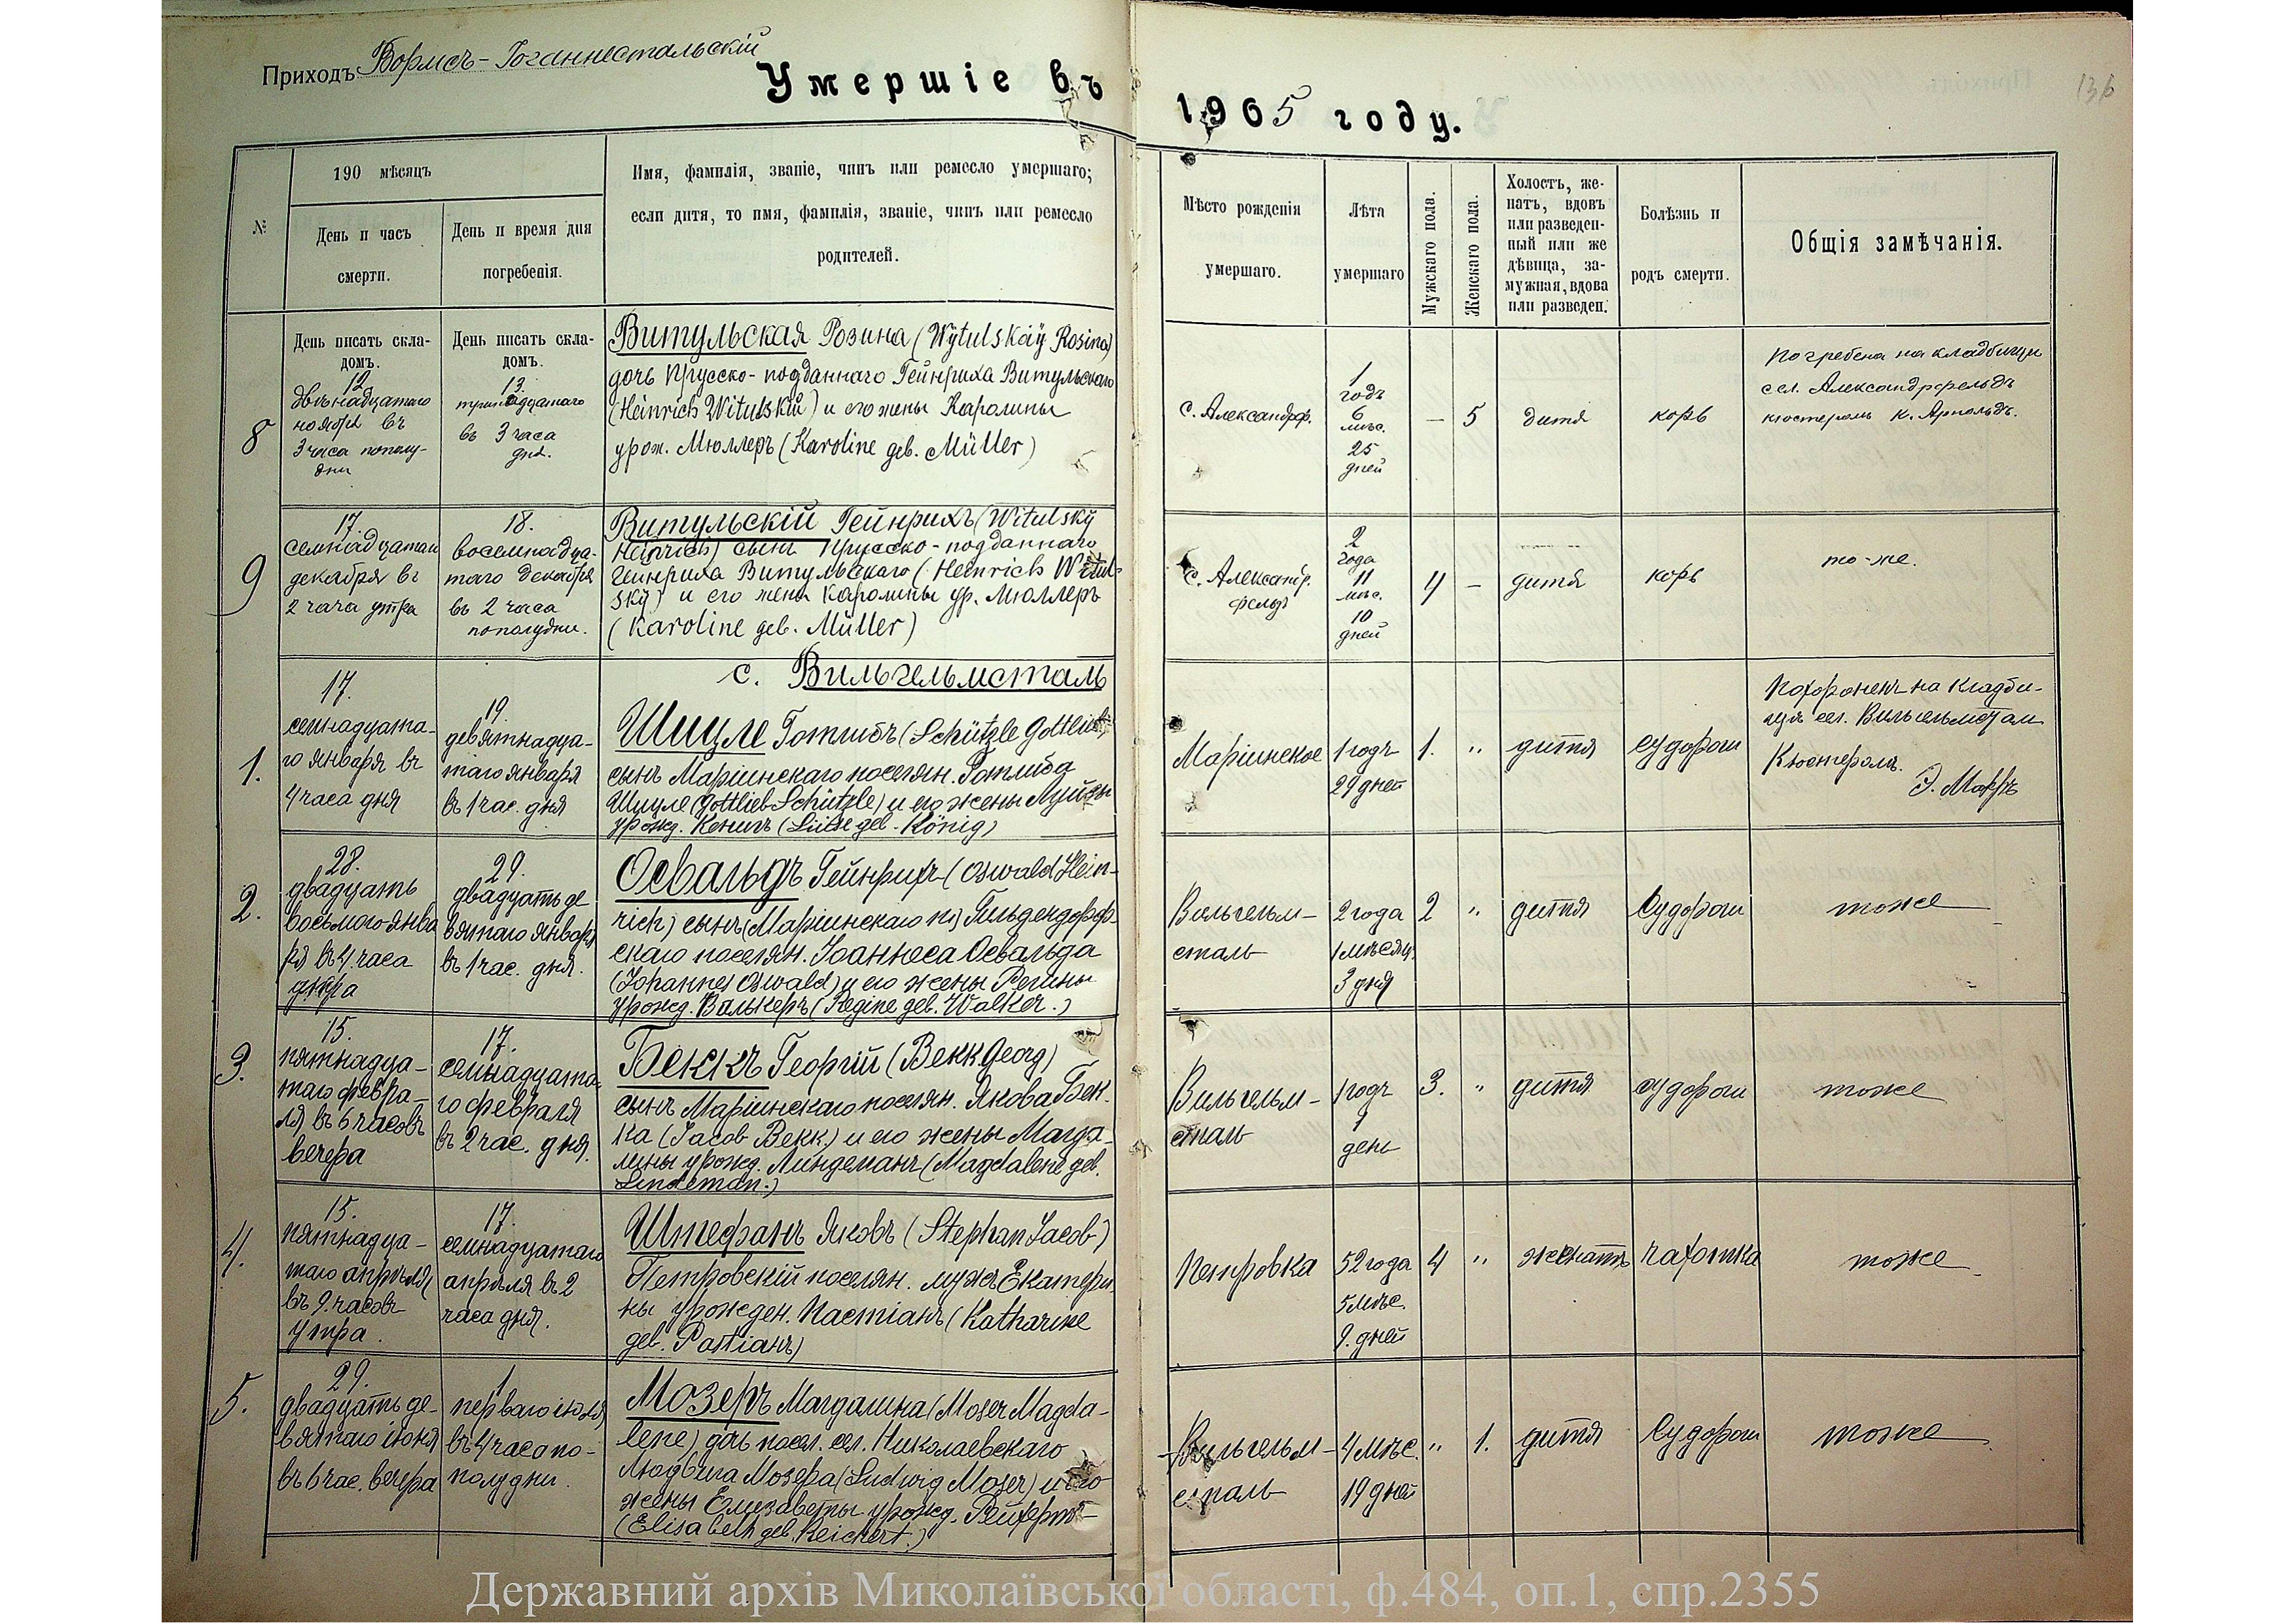 Приходъ Вормсъ-Іоганнестальскій
Умершіе въ
1905 году.
136
№
190 мѣсяцъ
День и часъ
смерти.
День и время дня
погребенія.
Имя, фамилія, званіе, чинъ или ремесло умершаго;
если дитя, то имя, фамилія, званіе, чинъ или ремесло
родителей.
Мѣсто рожденія
умершаго.
Лѣта
умершаго
Мужскаго пола.
Женскаго пола.
Холостъ, же-
натъ, вдовъ
или разведен-
ный или же
дѣвица, за-
мужная, вдова
или разведен.
Болѣзнь и
родъ смерти.
Общія замѣчанія.
День писать скла-
домъ.
День писать скла-
домъ.
8
12
двѣнадцатаго
ноября въ
3 часа пополу-
дни
13.
тринадцатаго
въ 3 часа
дня.
Витульская Розина (Wÿtulskaÿ Rosina)
дочь Прусско-подданнаго Гейнриха Витульскаго
(Heinrich Witulskÿ) и его жены Каролины
урож. Мюллеръ (Karoline geb. Müller)
с. Александрф.
1
годъ
6
мѣс.
25
дней
—
5
дитя
корь
Погребена на кладбищѣ
сел. Александрфельдъ
кюстеромъ К. Арнольдъ.
9
17.
семнадцатаго
декабря въ
2 часа утра
18.
восемнадца-
таго декабря
въ 2 часа
пополудни.
Витульскій Гейнрихъ (Witulskÿ
Heinrich) сынъ Прусско-подданнаго
Гейнриха Витульскаго (Heinrich Witul-
skÿ) и его жены Каролины ур. Мюллеръ
(Karoline geb. Müller)
с. Александр.
фельдъ
2
года
11
мѣс.
10
дней
4
—
дитя
корь
то-же.
с. Вильгельмсталь
1.
17.
семнадцата-
го января въ
4 часа дня
19.
девятнадца-
таго января
въ 1 час. дня
Шицле Готлибъ (Schützle Gottlieb)
сынъ Маріинскаго поселян. Готлиба
Шицле (Gottlieb Schützle) и его жены Луизы
урожд. Кенигъ (Luise geb. König)
Маріинское
1 годъ
29 дней
1.
"
дитя
судороги
Похороненъ на кладби-
щѣ сел. Вильгельмсталь
Кюстеромъ.
2.
28.
двадцать
восьмого янва
ря въ 4 часа
утра
29.
двадцать де
вятаго января
въ 1 час. дня.
Освальдъ Гейнрихъ (Oswald Hein-
rich) сынъ (Маріинскаго по) Гильдендорф-
скаго поселян. Іоаннеса Освальда
(Johannes Oswald) и его жены Регины
урожд. Валькеръ (Regine geb. Walker.)
Вильгельм-
сталь
2 года
1 мѣсяц.
3 дня
2
"
дитя
Судороги
тоже
3.
15.
пятнадца-
таго февра-
ля въ 6 часовъ
вечера
17.
семнадцата-
го февраля
въ 2 час. дня.
Беккъ Георгій (Bekk Georg)
сынъ Маріинскаго поселян. Якова Бек-
ка (Jacob Bekk) и его жены Магда-
лины урожд. Линдеманъ (Magdalene geb.
Lindeman.)
Вильгельм-
сталь
1 годъ
1
день
3.
"
дитя
судороги
тоже
4.
15.
пятнадца-
таго апрѣля
въ 9. часовъ
утра.
17.
семнадцатаго
апрѣля въ 2
часа дня.
Штефанъ Яковъ (Stephan Jacob)
Петровскій поселян. мужъ Екатери-
ны урожден. Пастіанъ (Katharine
geb. Pastianъ)
Петровка
52 года
5 мѣс.
9. дней
4
"
женатъ
чахотка
тоже
5.
29.
двадцать де-
вятаго іюня
въ 6 час. вечера
1
перваго іюля
въ 4 часа по-
полудни.
Мозеръ Магдалина (Moser Magda-
lene) дочь посел. сел. Николаевскаго
Людвига Мозера (Ludwig Moser) и его
жены Елизаветы урожд. Рейхертъ
(Elisabeth geb. Reichert.)
Вильгельм-
сталь
4 мѣс.
19 дней
"
1.
дитя
Судороги
тоже
Державний архів Миколаївської області, ф.484, оп.1, спр.2355